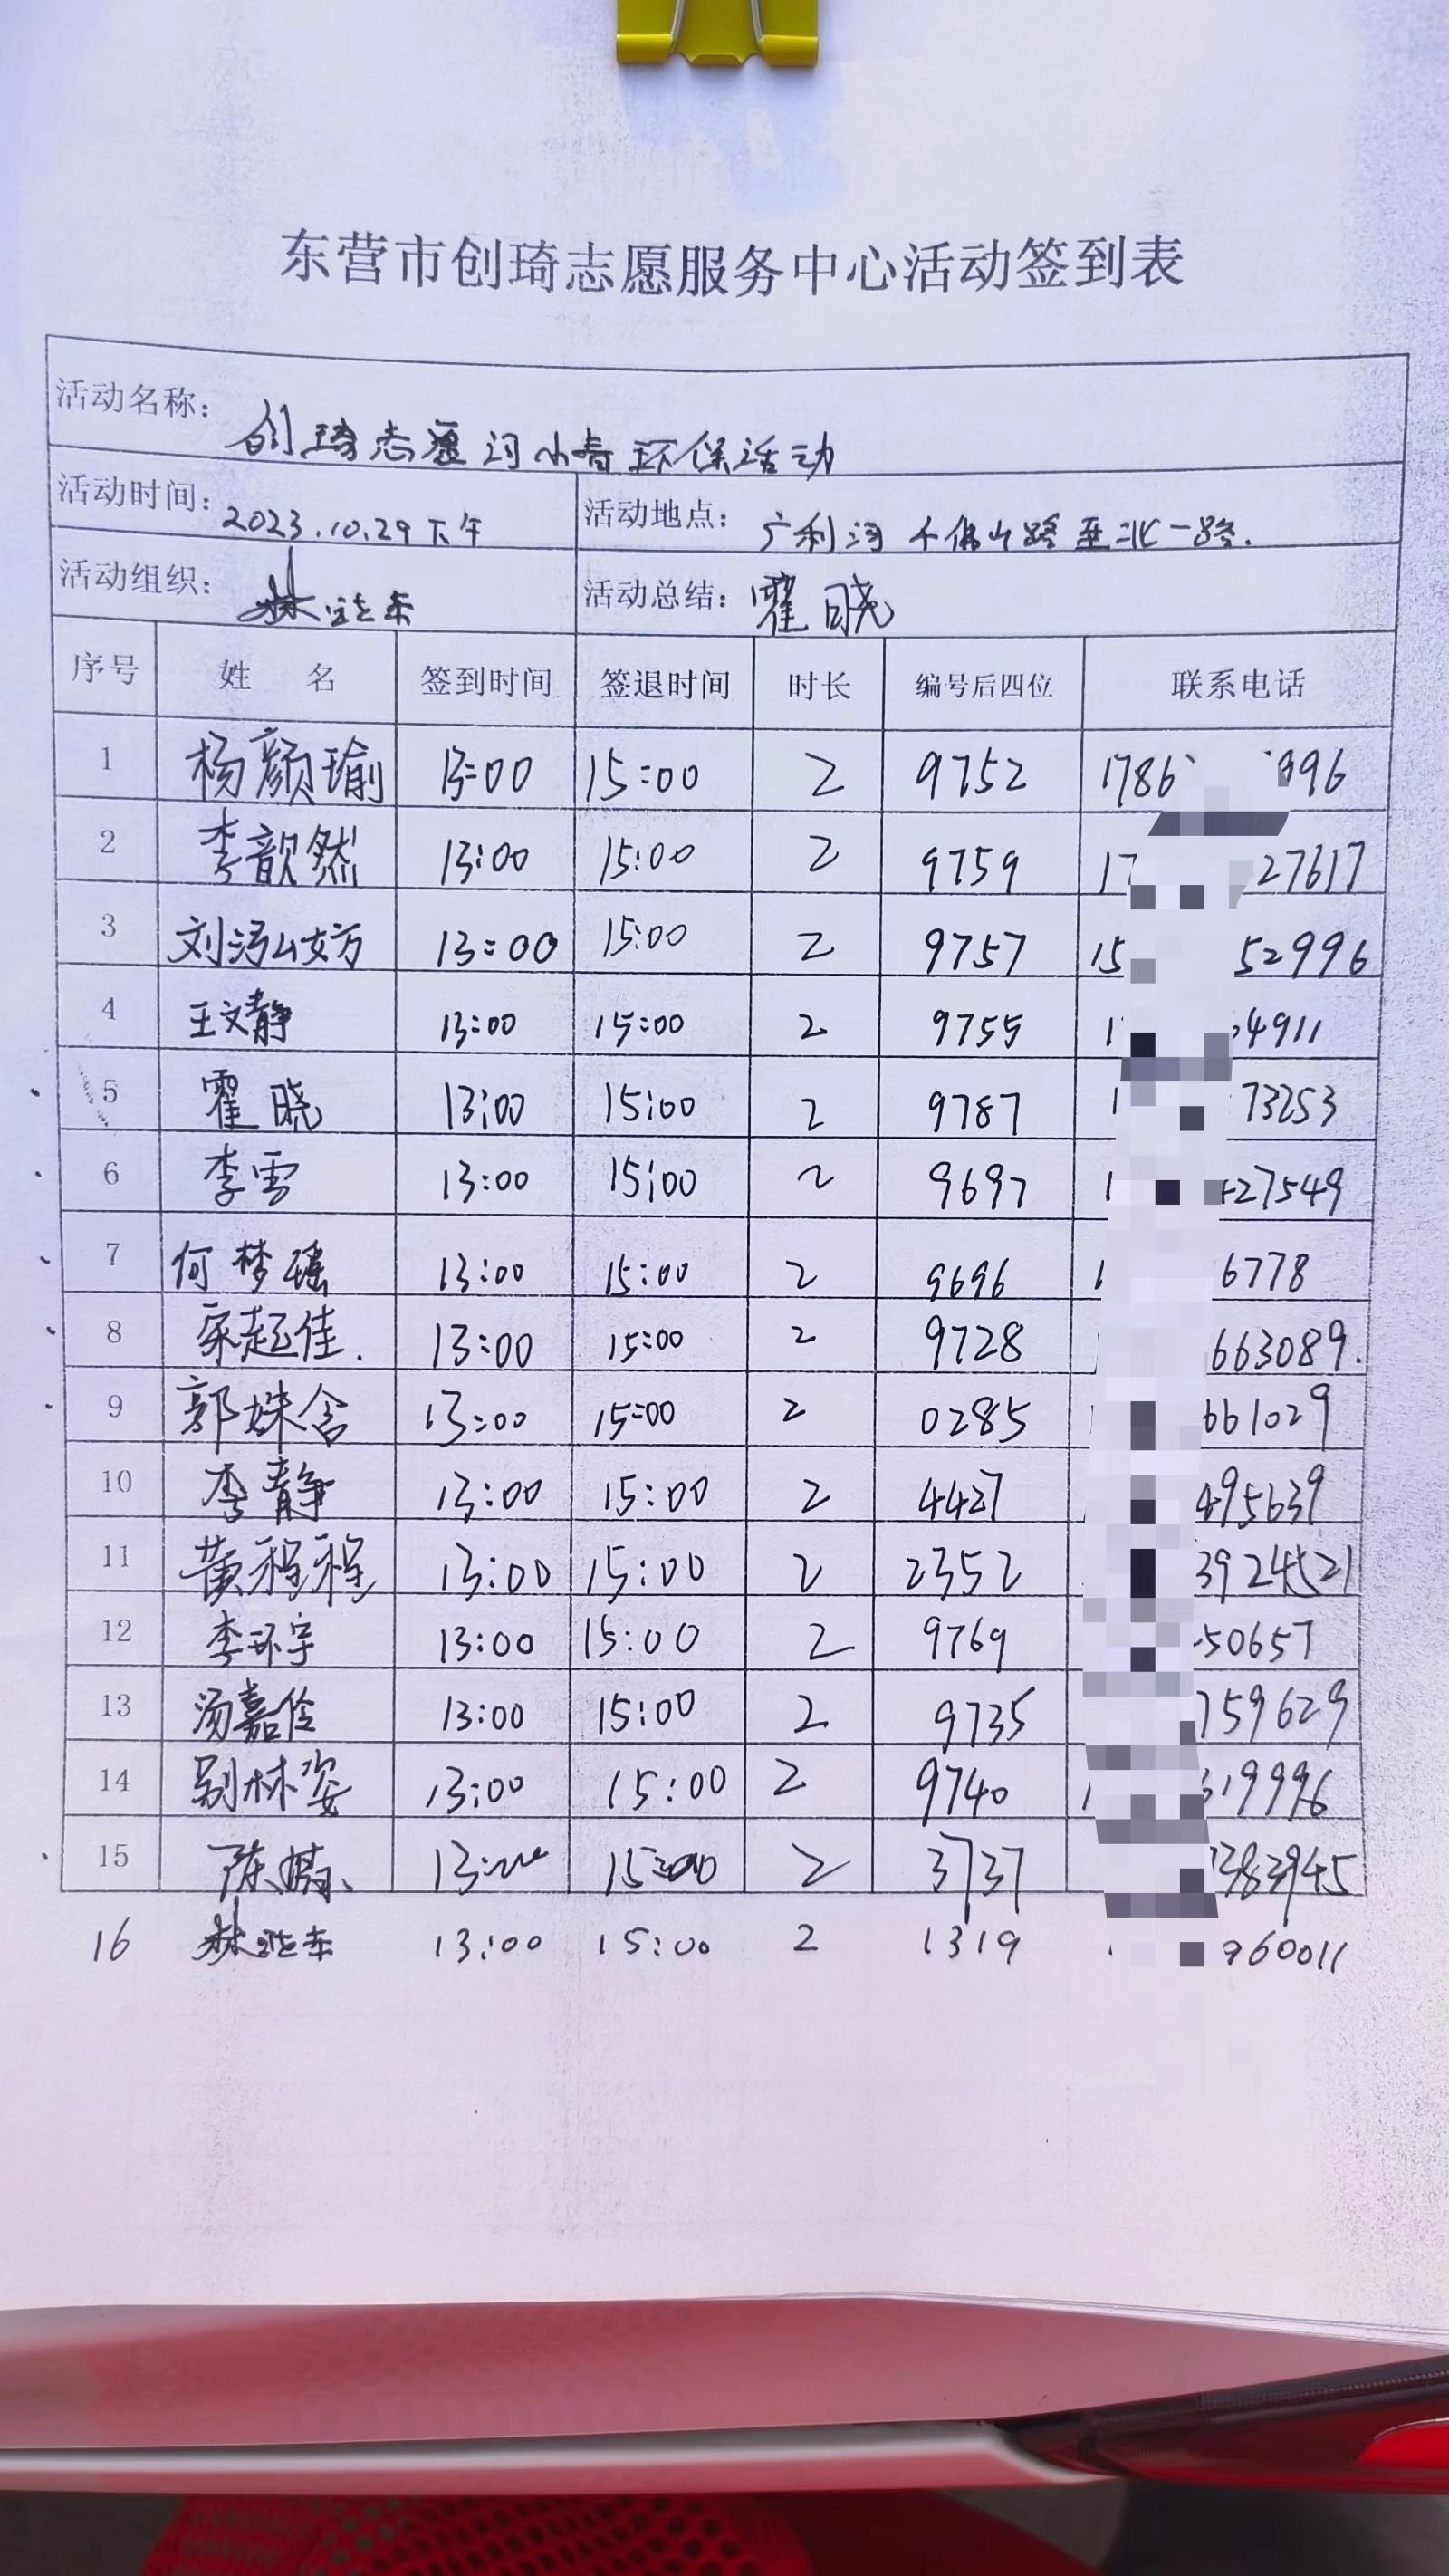 东营市创琦志愿服务中心活动签到表
活动名称： 创琦志愿河小青环保活动
活动时间： 2023.10.29下午 活动地点： 广利河 千佛山路至北一路.
活动组织： 活动总结： 霍晓
序号 姓 名 签到时间 签退时间 时长 编号后四位 联系电话
1 杨颜瑜 13:00 15:00 2 9752 1786 996
2 李歆然 13:00 15:00 2 9759 17 27617
3 刘 13:00 15:00 2 9757 15 52996
4 王文静 13:00 15:00 2 9755 1 4911
5 霍晓 13:00 15:00 2 9787 1 73253
6 李雪 13:00 15:00 2 9697 1 27549
7 何梦瑶 13:00 15:00 2 9696 1 6778
8 宋起佳. 13:00 15:00 2 9728 663089.
9 郭姝含 13:00 15:00 2 0285 661029
10 李静 13:00 15:00 2 4427 495639
11 黄程程 13:00 15:00 2 2352 3924521
12 李环宇 13:00 15:00 2 9769 50657
13 汤嘉伶 13:00 15:00 2 9735 759629
14 别林姿 13:00 15:00 2 9740 1 19996
15 陈 13:00 15:00 2 3737 383945
16 13:00 15:00 2 1319 960011